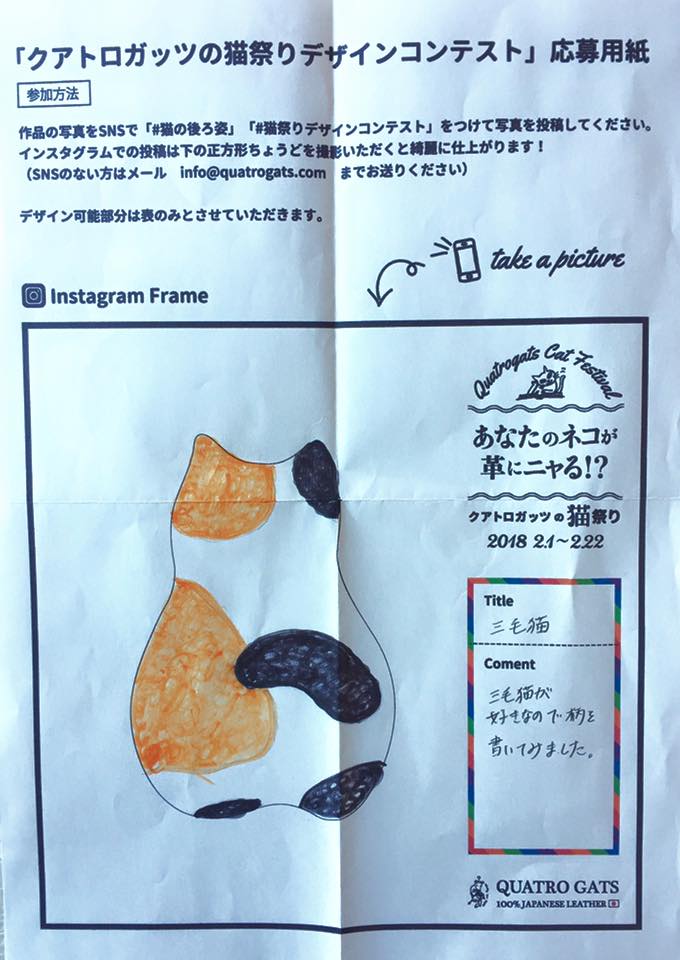 「クアトロガッツの猫祭りデザインコンテスト」応募用紙
参加方法
作品の写真をSNSで「#猫の後ろ姿」「#猫祭りデザインコンテスト」をつけて写真を投稿してください。
インスタグラムでの投稿は下の正方形ちょうどを撮影いただくと綺麗に仕上がります！
（SNSのない方はメール　info@quatrogats.com　までお送りください）
デザイン可能部分は表のみとさせていただきます。
take a picture
Instagram Frame
Quatrogats Cat Festival
あなたのネコが
革にニャる!?
クアトロガッツの猫祭り
2018 2.1〜2.22
Title
三毛猫
Coment
三毛猫が
好きなので柄を
書いてみました。
QUATRO GATS
100% JAPANESE LEATHER